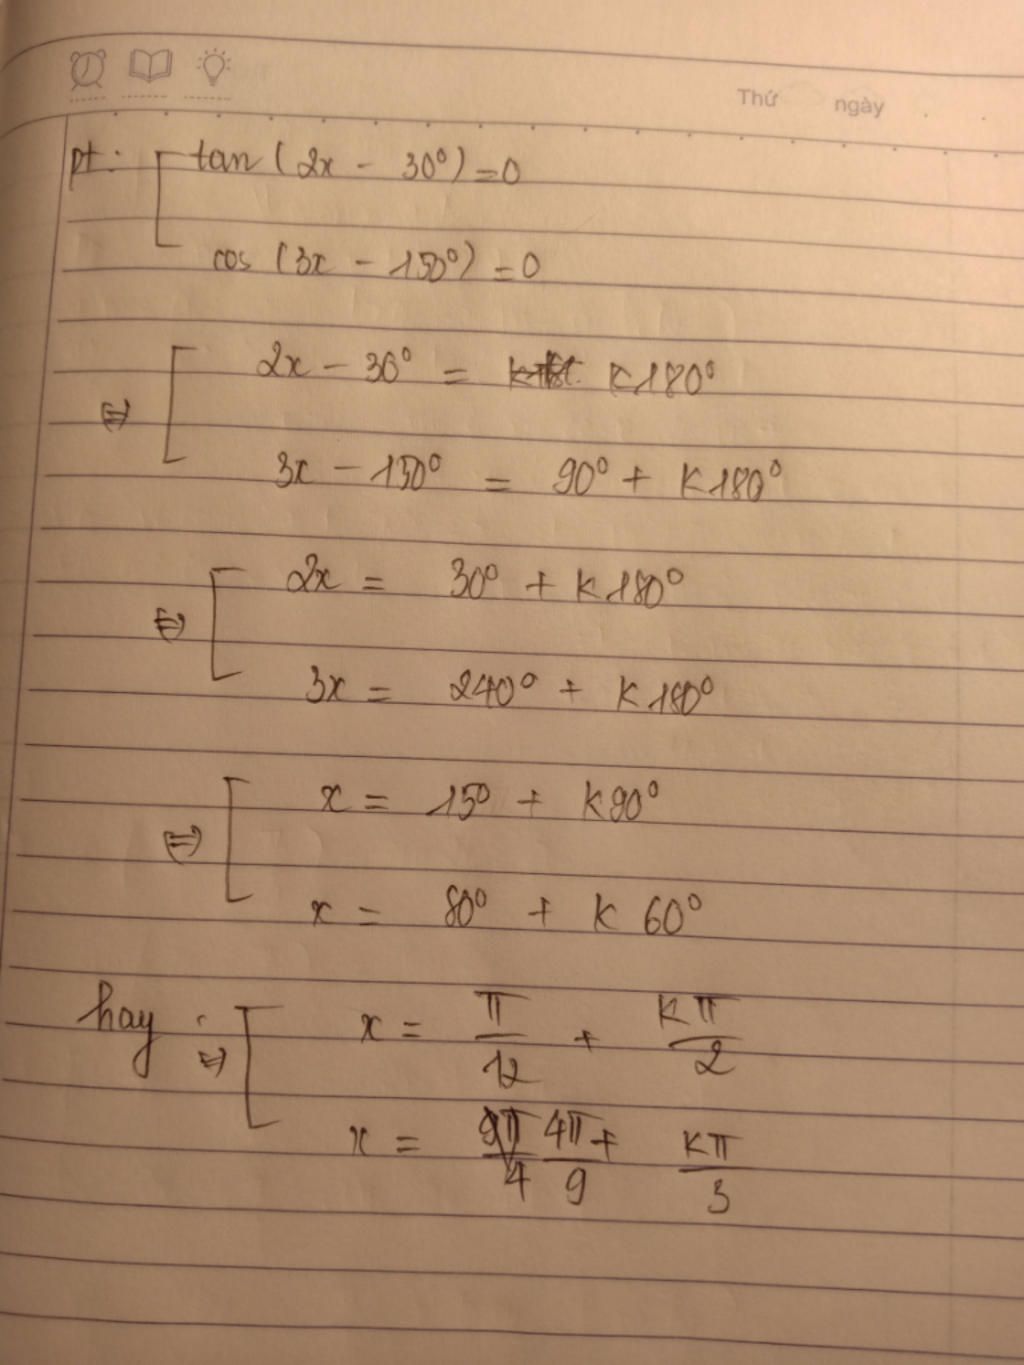 Thứ ngày
pt: tan (2x - 30°) = 0
cos (3x - 150°) = 0
⇔ 2x - 30° = K180°
3x - 150° = 90° + K180°
⇔ 2x = 30° + K180°
3x = 240° + K180°
⇔ x = 15° + K90°
x = 80° + K 60°
hay : ⇔ x = π/12 + Kπ/2
x = 4π/9 + Kπ/3